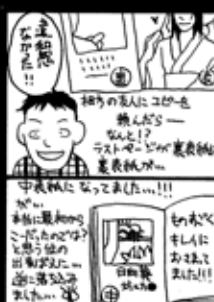 違和感
なかった!!
相方の友人にコピーを
頼んだら―
なんと!?
ラストページが裏表紙に
裏表紙が…
中表紙になってました…!!!
が…
本当に最初から
こーだったのでは?
と思う位の
出来ばえに…
逆に落ち込み
ました…
ものすごく
キレイに
おさまって
ました!!!